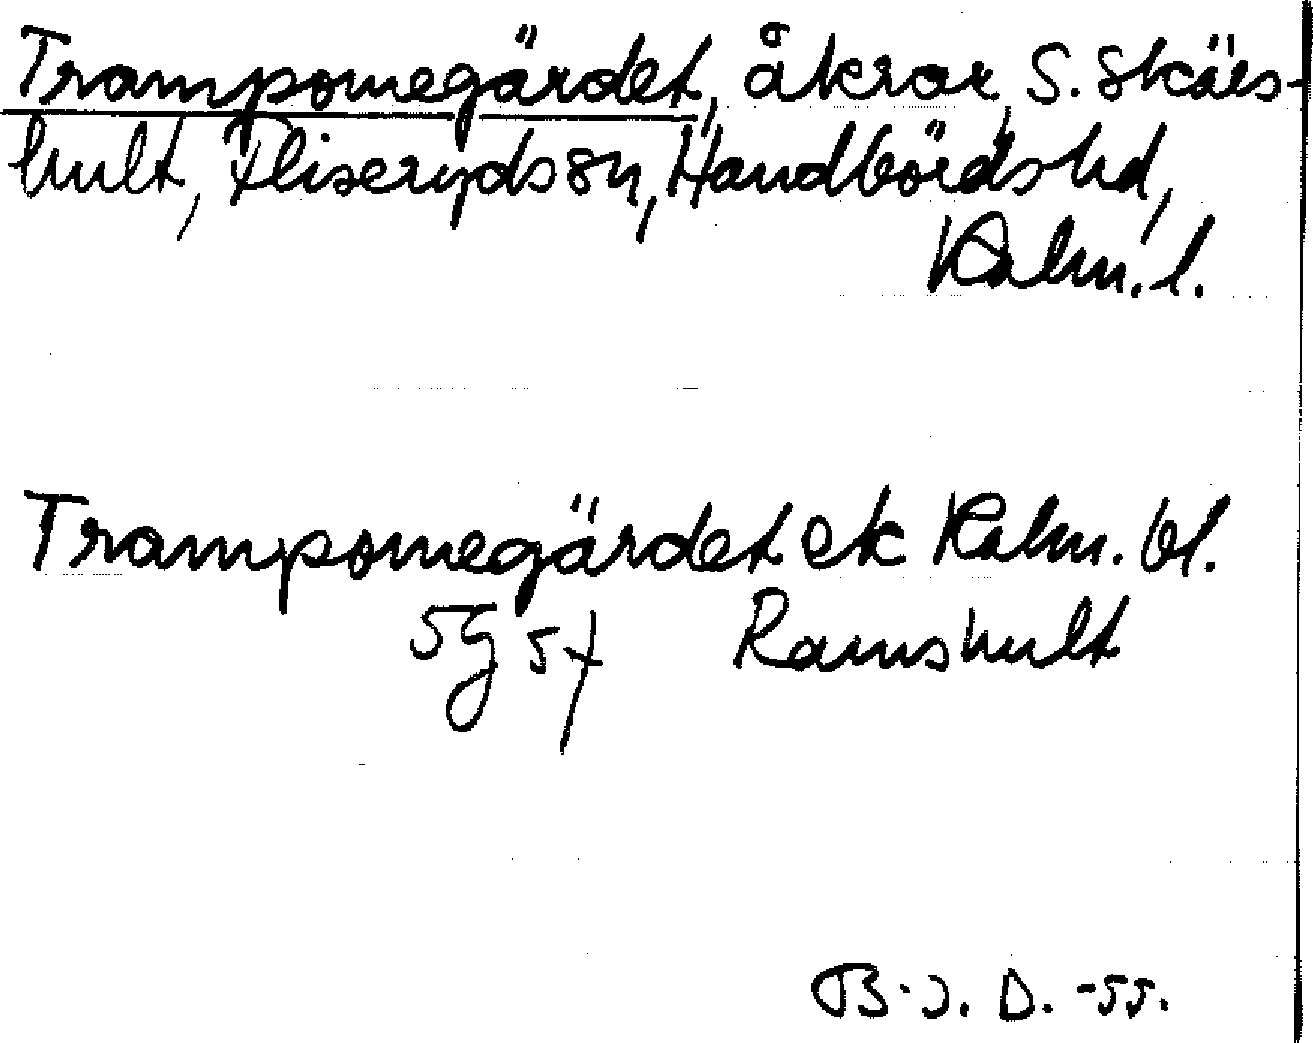 Trampomegärdet, åkrar, S. Skäes-
hult, Fliseryds sn, Handbörds hd,
Kalm. l.
Trampomegärdet ek Kalm. bl.
5G 5f Ramshult
B.J. D. -55.